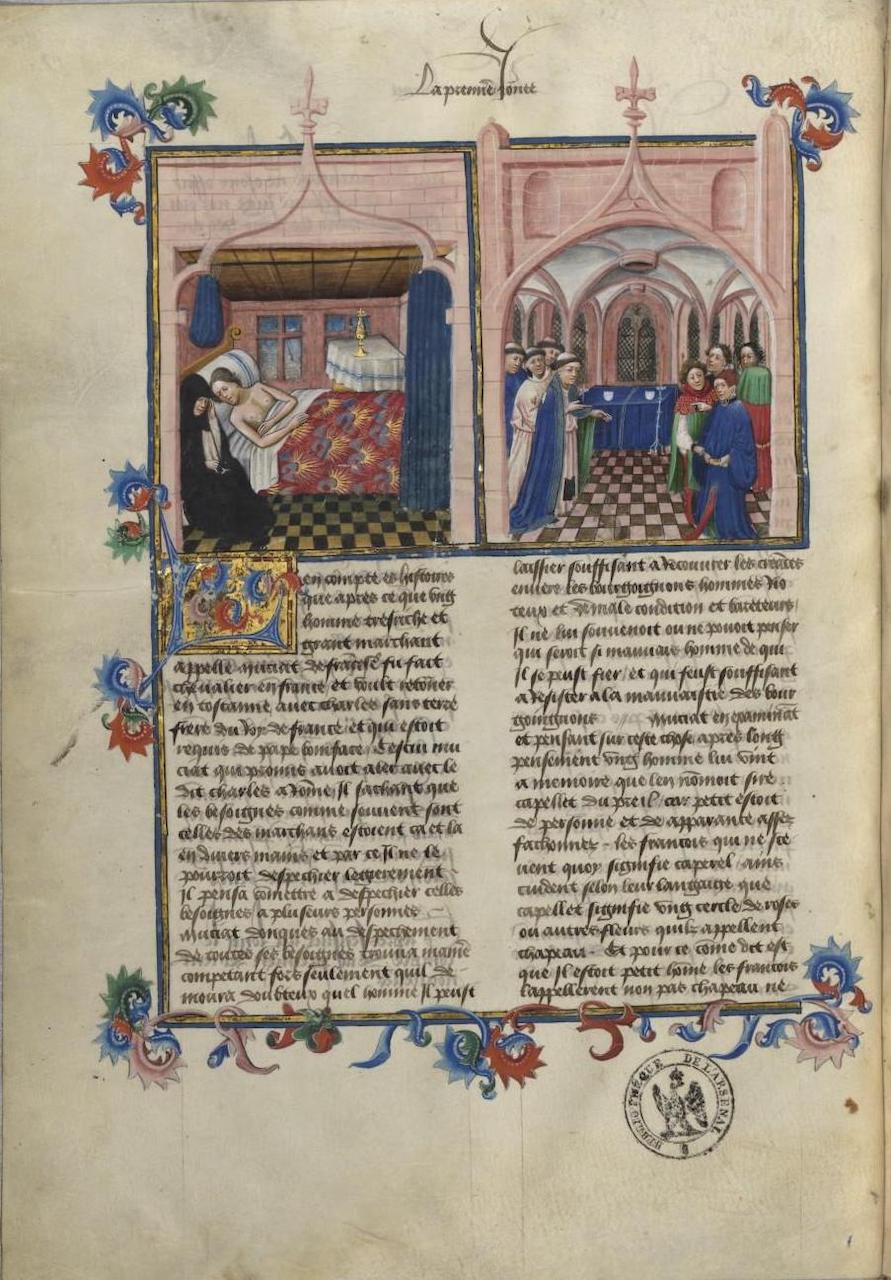 La premiere Jornee
en compte es histoires
que apres ce que ung
homme tresriche et
grant marchant
appelle Muciat de france fu fait
chevalier en france et voult retorner
en toscanne avec charles sans terre
frere du Roy de france et qui estoit
requis de pape boniface Cestui mu
ciat qui promis avoit aler avec le
dit charles a Rome Il sachant que
les besoignes comme souvent sont
celles des marchans estoient ca et la
en divers mains et par ce Il ne le
pourroit despechier legierement
Il pensa cometre a despechier celles
besoignes a plusieurs personnes
Muciat donques au despechement
de toutes ses besoignes trouva manie
competant fors seulement quil de
moura doubteux quel homme Il peust
laissier souffisant a Recouvrer les creances
envers les bourgoignons hommes Rio
teux et de male condition et barateurs
Il ne lui souvenoit ou ne povoit penser
qui seroit si mauvais homme de qui
Il se peust fier et qui feust souffisant
a Resister a la mauvaistie des bour
goignons Muciat en examinant
et pensant sur ceste chose apres long
pensement ung homme lui vint
a memoire que len nomoit sire
capellet du preil car petit estoit
de personne et de apparance assez
fachonnez les francois qui ne sce
vent quoy signifie caperel ains
cuident selon leur langaige que
capellet signifie ung cercle de roses
ou autres fleurs quilz appellent
chapeau Et pour ce come dit est
que Il estoit petit home les francois
lappellerent non pas chapeau ne
BIBLIOTHEQUE DE L'ARSENAL